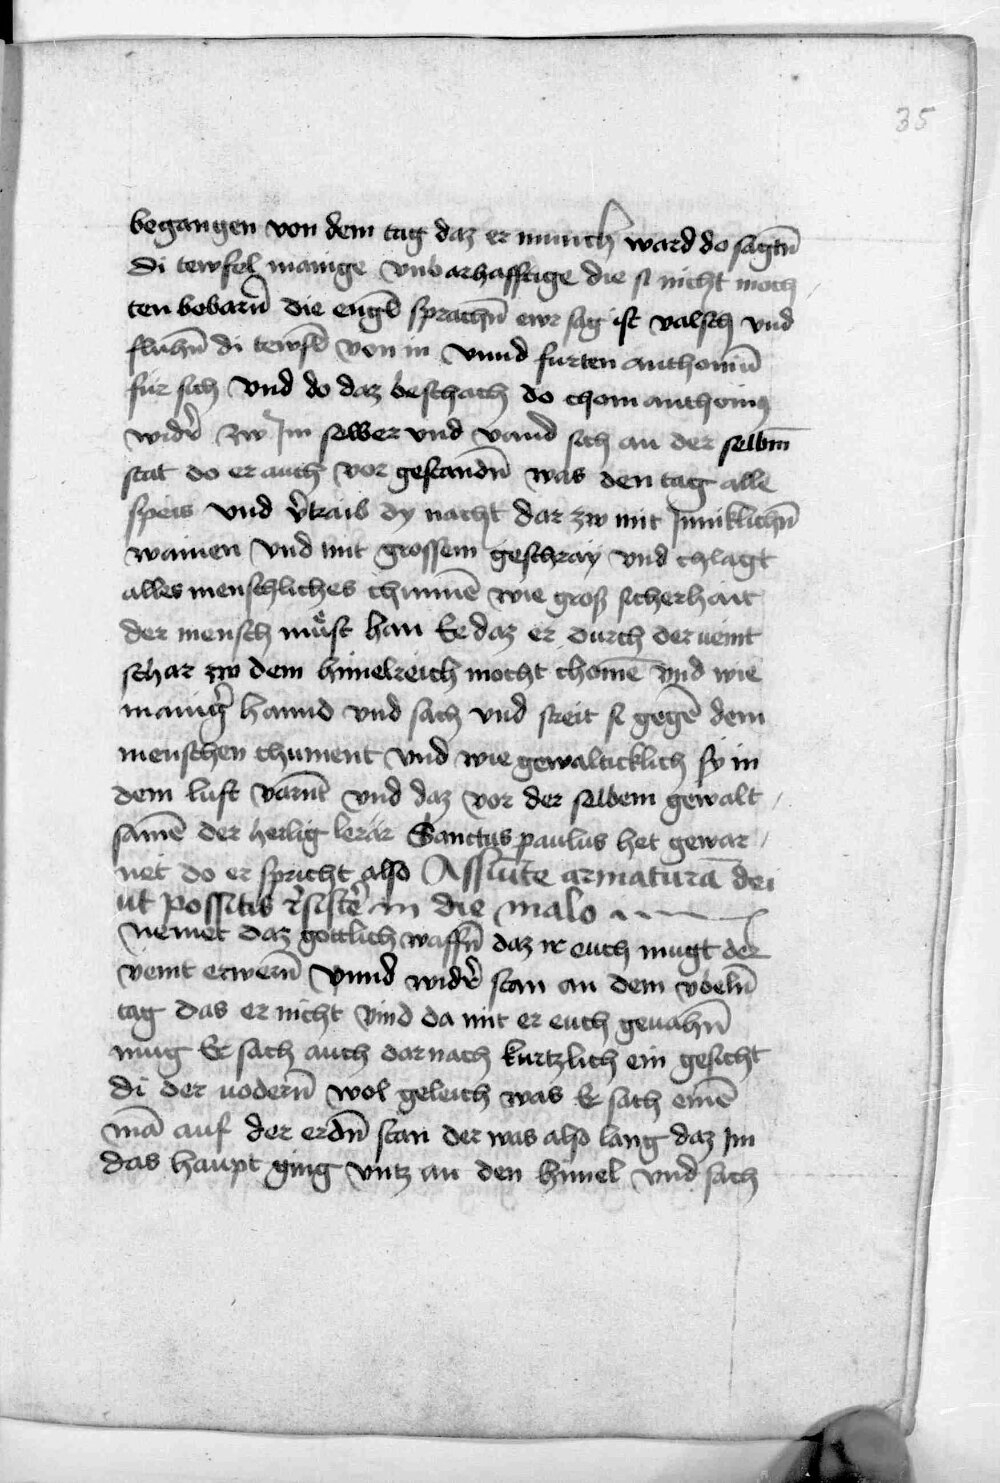 35
begangen von dem tag daz er munich ward do sagtn̄
di tewfel manige vnbarhafftige die si nicht moch
ten bobarn̄ die engl̄ sprachn̄ ewr sag ist valsch vnd
fluhn̄ di tewfl̄ von in vnnd furten anthoniū
für sich vnd do daz beschach do chom anthonius
widr̄ zw Im selber vnd vand sich an der selbm̄
stat do er auch vor gestandn̄ was den tag alle
speis vnd v̄traib dy nacht dar zw mit Inniklichn̄
wainen vnd mit grossem geschray vnd chlagt
alles menschliches chunnē wie groß sicherhait
der mensch müest han Ee daz er durch der veint
schar zw dem himelreich mocht chomē vnd wie
manigr̄ hannd vnd sach vnd streit si gegē dem
menschen chument vnd wie gewalticklich sy in
dem luft varnt̄ vnd daz vor der selbem gewalt
samē der heilig lerär Sanctus paulus het gewar
net do er spricht also Assumite armaturā dei
ut possitis r̄sistē in die malo
Nemet daz gottlich waffn̄ daz ir euch mugt der
veint erwern̄ vnnd widr̄ stan an dem vbeln̄
tag das er nicht vind da mit er euch geuahn̄
mug Er sach auch darnach kurtzlich ein gesicht
di der uodern̄ wol geleich was Er sach einē
mā auf der erdn̄ stan der was also lang daz Im
das haupt ging vntz an den himel vnd sach